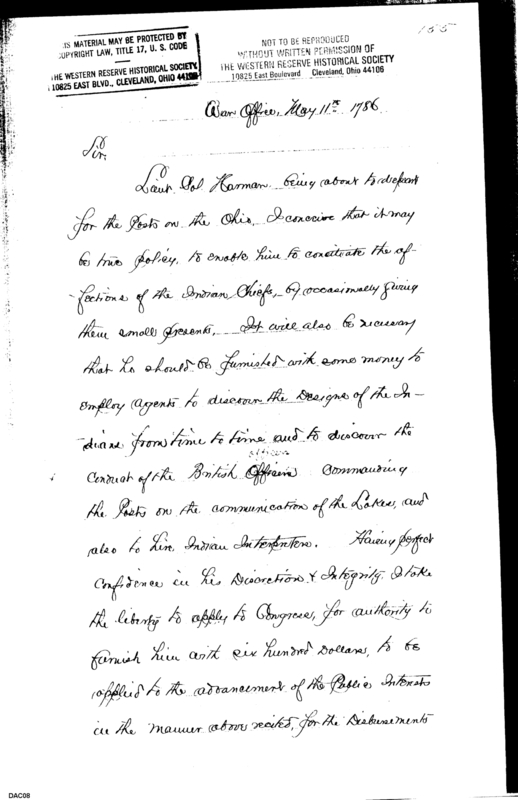 155
THIS MATERIAL MAY BE PROTECTED BY
COPYRIGHT LAW, TITLE 17, U. S. CODE
THE WESTERN RESERVE HISTORICAL SOCIETY
10825 EAST BLVD., CLEVELAND, OHIO 44106
NOT TO BE REPRODUCED
WITHOUT WRITTEN PERMISSION OF
THE WESTERN RESERVE HISTORICAL SOCIETY
10825 East Boulevard Cleveland, Ohio 44106
War Office, May 11th 1786
Sir,
Lieut Col Harman being about to depart
for the Posts on the Ohio, I conceive that it may
be true policy, to enable him to conciliate the af-
fections of the Indian Chiefs, by occasionally giving
them small presents,. It will also be necessary
that he should be furnished with some money to
employ agents to discover the Designs of the In-
dians from time to time and to discover the
officers
Conduct of the British Officers commanding
the Posts on the communication of the Lakes, and
also to hire Indian Interpreters. Having perfect
Confidence in his Discretion & Integrity I take
the liberty to apply to Congress, for authority to
furnish him with six hundred Dollars, to be
applied to the advancement of the Public Interests
in the manner above recited, for the Disbursements
DAC08